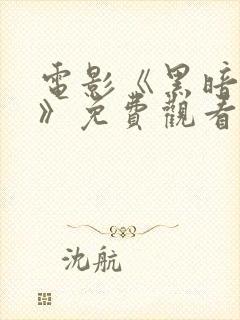 電影《黑暗
》免費觀看
沈航